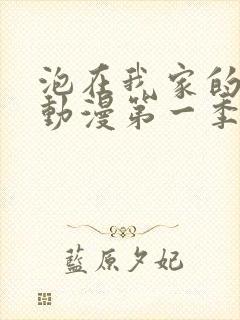 泡在我家的
動漫第一季
藍原夕妃